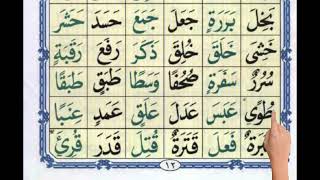 بَخِلَ بَرَرَةٍ جَعَلَ جَمَعَ حَسَدَ حَشَرَ
خَشِيَ خَلَقَ خُلِقَ ذَكَرَ رَفَعَ رَقَبَةٍ
سُرُرٌ سَفَرَةٍ صُحُفًا وَسَطًا طَبَقٍ طَبَقًا
طُوًى عَبَسَ عَدَلَ عَلَقٍ عَمَدٍ عِنَبًا
فَعَلَ قَتَرَةٌ قُتِلَ قَدَرَ قُرِئَ
١٢